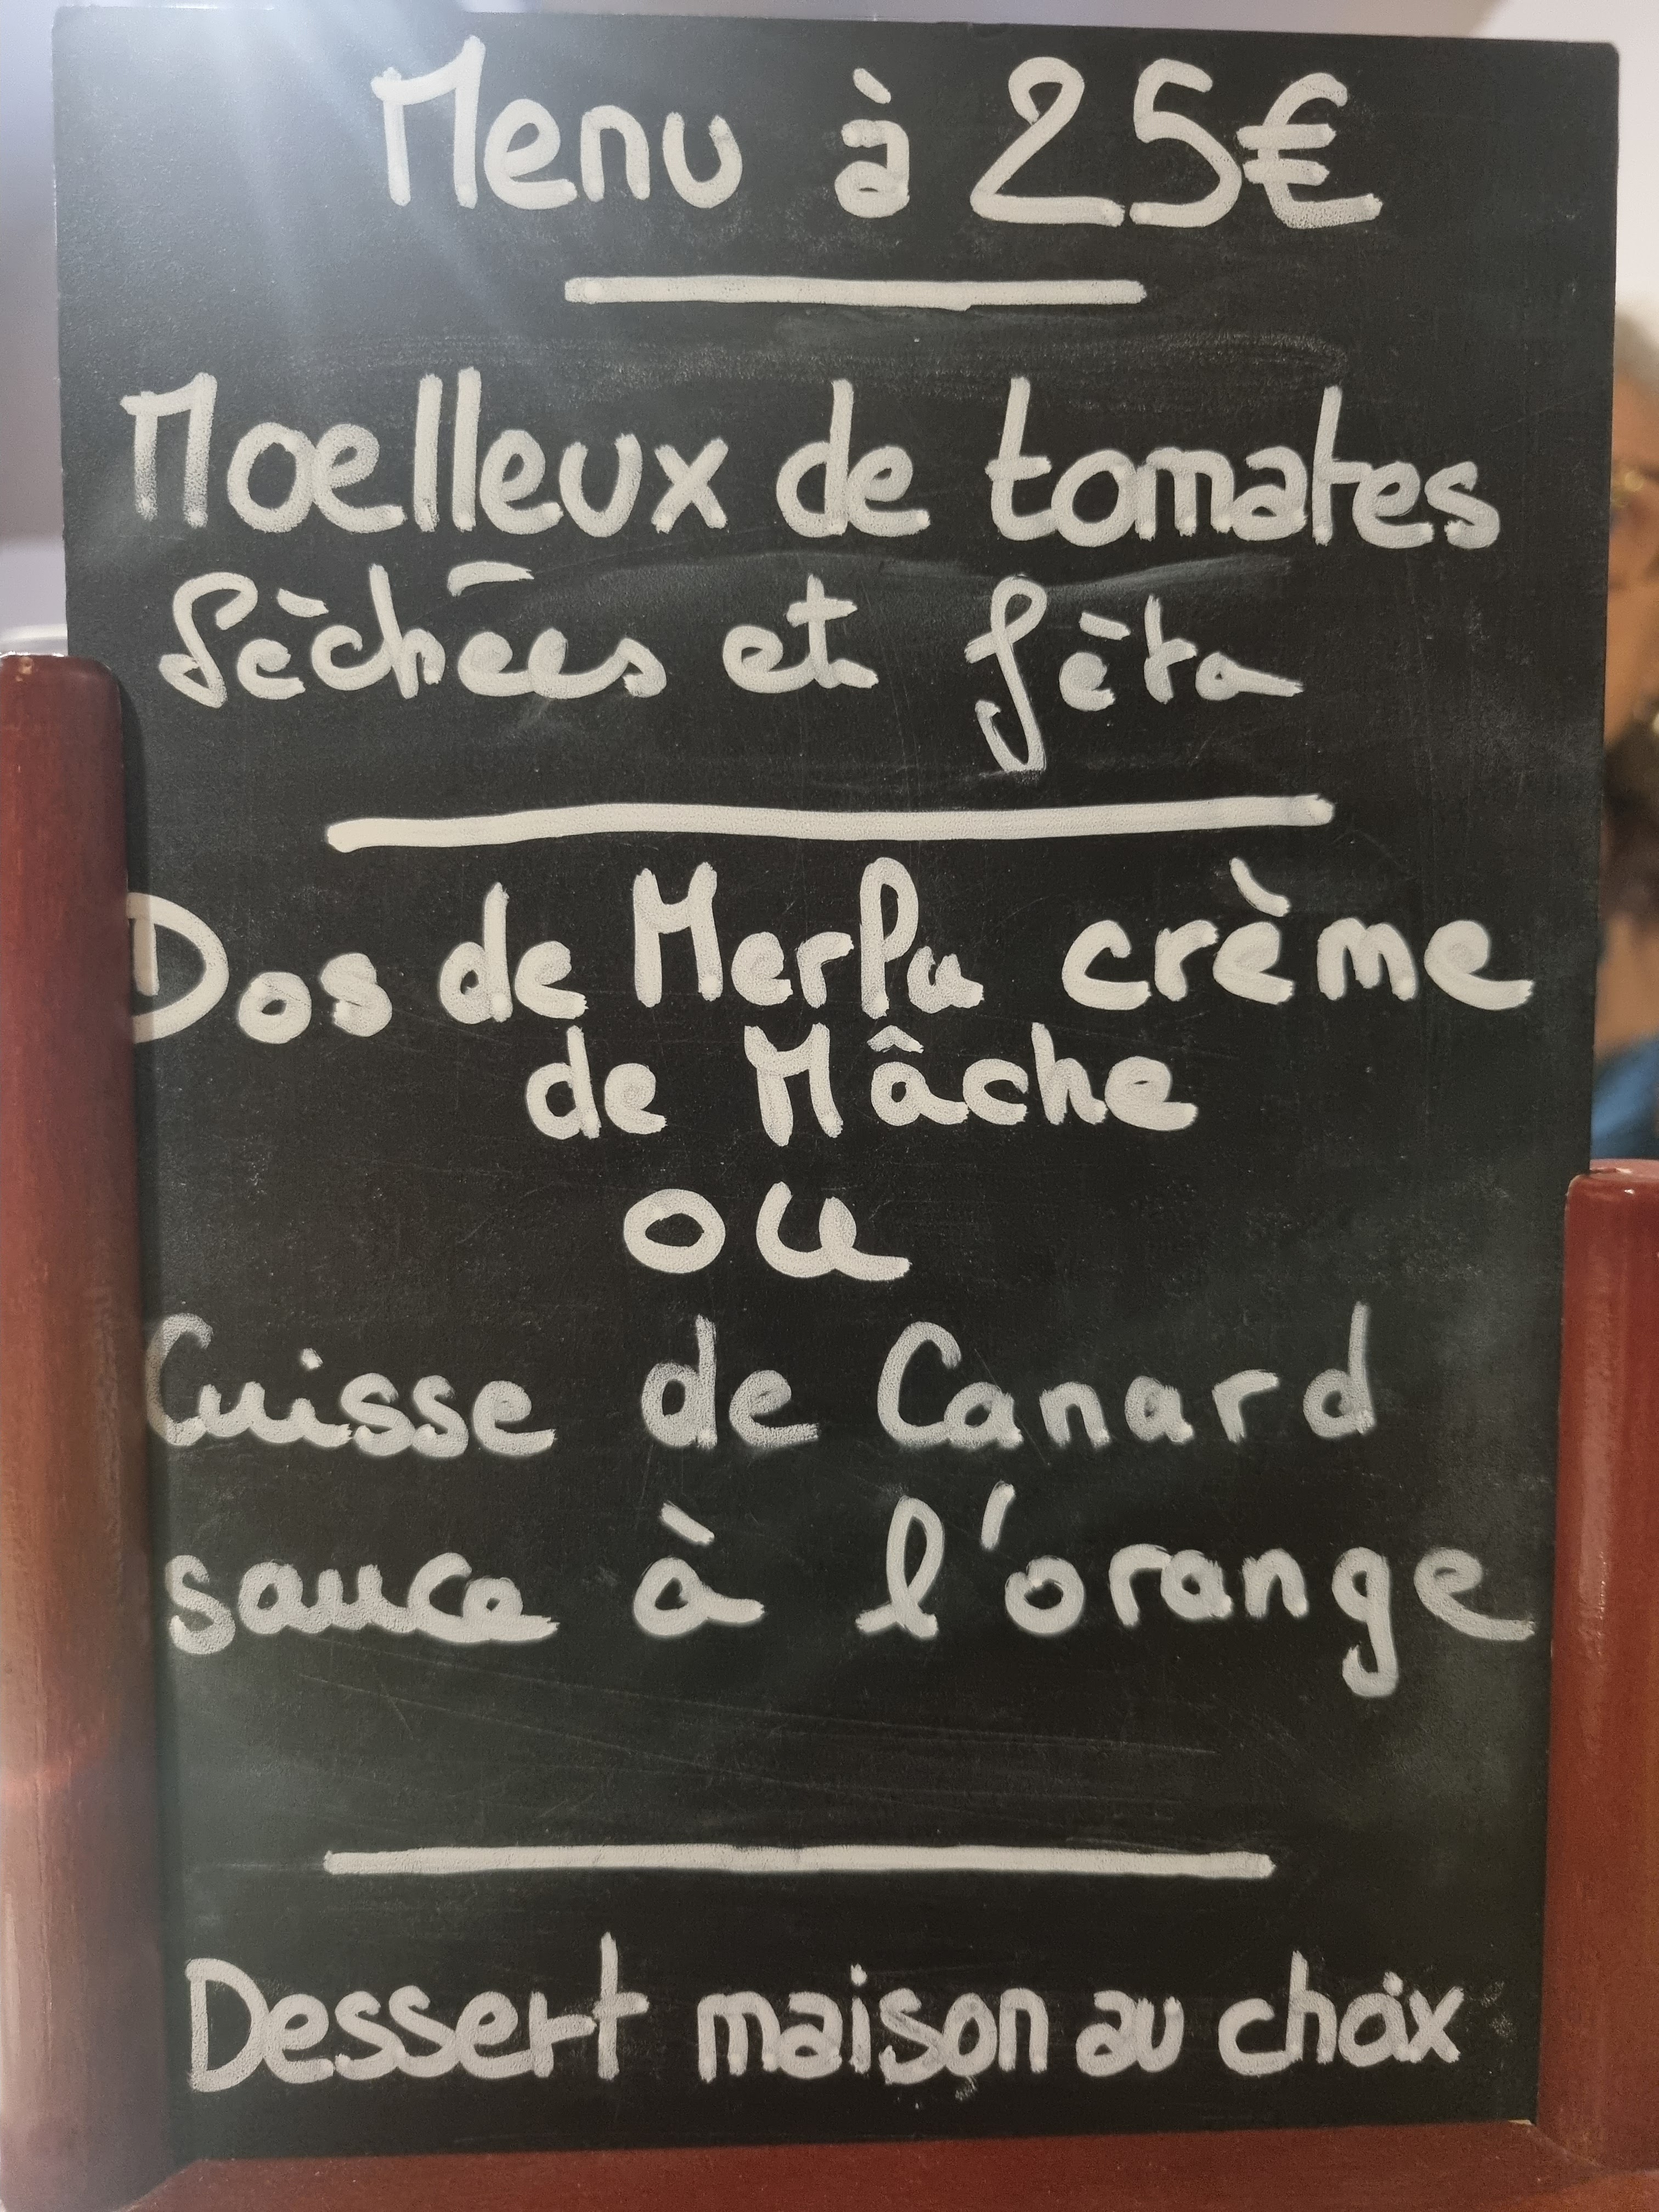 Menu à 25€
Moelleux de tomates
sèchées et fèta
Dos de Merlu crème
de Mâche
ou
Cuisse de Canard
sauce à l'orange
Dessert maison au choix